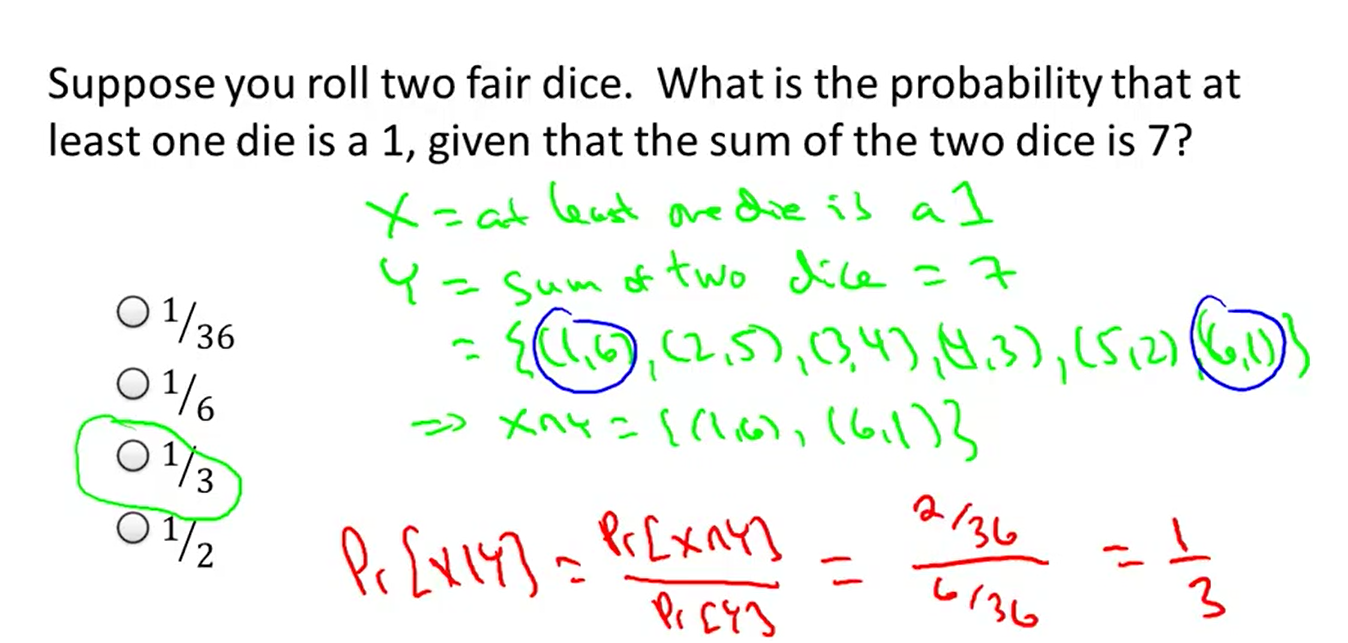 Suppose you roll two fair dice. What is the probability that at
least one die is a 1, given that the sum of the two dice is 7?
X = at least one die is a 1
Y = sum of two dice = 7
= {(1,6), (2,5), (3,4), (4,3), (5,2), (6,1)}
⇒ X∩Y = {(1,6), (6,1)}
1/36
1/6
1/3
1/2
Pr[X|Y] = Pr[X∩Y] / Pr[Y] = 2/36 / 6/36 = 1/3